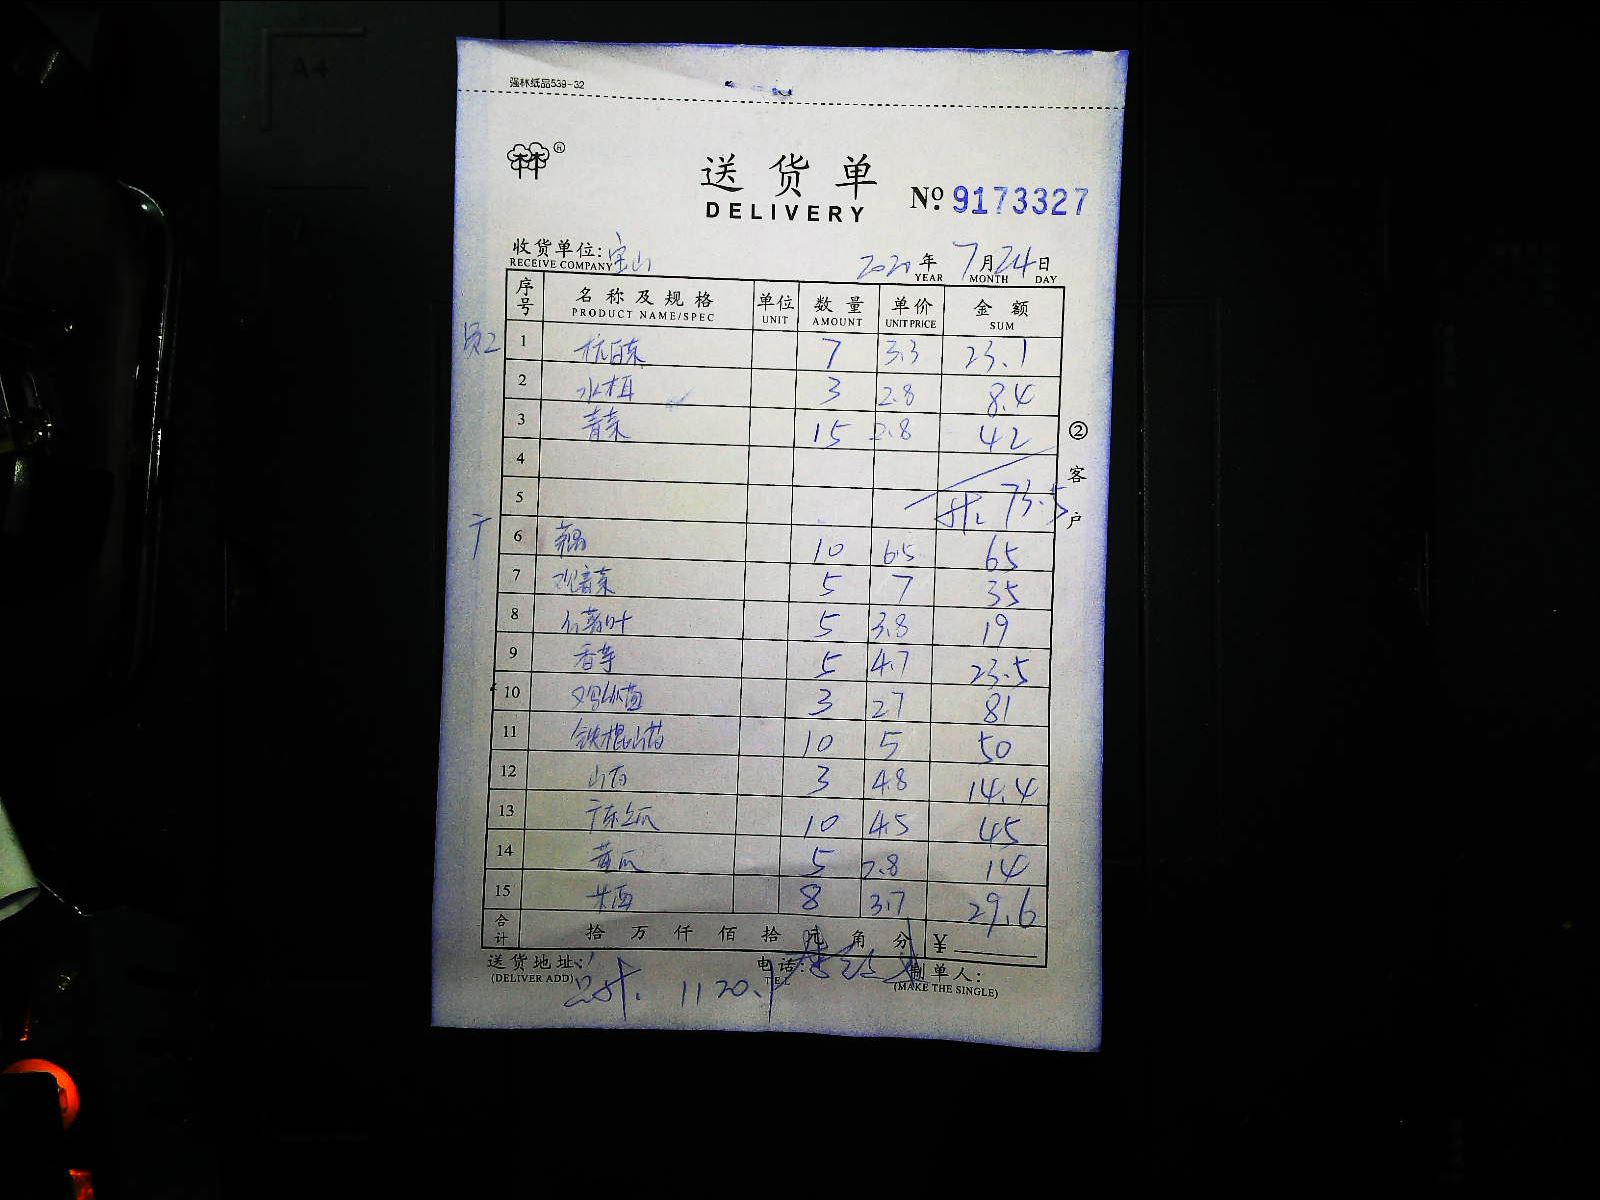 强林纸品539-32
林®
送货单
DELIVERY
№ 9173327
收货单位: 宝山
RECEIVE COMPANY
2020年 7月 24日
YEAR MONTH DAY
序号 名称及规格 单位 数量 单价 金额
PRODUCT NAME/SPEC UNIT AMOUNT UNIT PRICE SUM
1 杭白菜 7 3.3 23.1
2 木耳 3 2.8 8.4
3 青菜 15 2.8 42
4
5 计: 73.5
6 藕 10 6.5 65
7 观音菜 5 7 35
8 薯叶 5 3.8 19
9 香芋 5 4.7 23.5
10 鸡纵菌 3 27 81
11 铁棍山药 10 5 50
12 山药 3 4.8 14.4
13 广东丝瓜 10 4.5 45
14 黄瓜 5 2.8 14
15 8 3.7 29.6
合计 拾 万 仟 佰 拾 元 角 分 ¥
②客户
送货地址: 电话: 制单人:
(DELIVER ADD) TEL (MAKE THE SINGLE)
总计: 1120.1